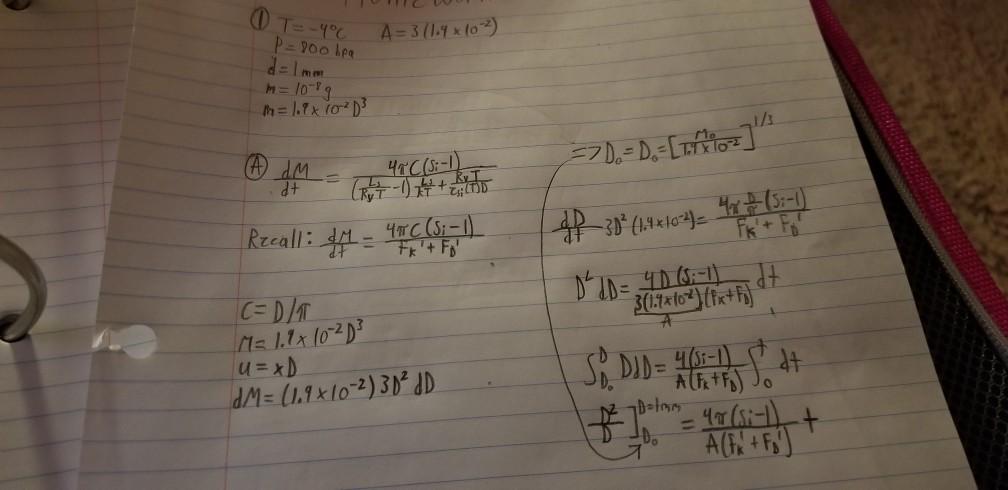 Homework
① T = -4°C A = 3(1.9 × 10⁻²)
P = 800 hpa
d = 1 mm
m = 10⁻⁸ g
m = 1.9 × 10⁻² D³
Ⓐ dM/dt = 4πC(Si-1) / ((Ls/RvT - 1) Ls/KT + RvT/esi(T)D)
Recall: dM/dt = 4πC(Si-1) / (FK' + FD')
C = D/π
M = 1.9 × 10⁻² D³
u = xD
dM = (1.9 × 10⁻²) 3D² dD
=> D₀ = D₀ = [M₀ / 1.9 × 10⁻²]^1/3
dD/dt 3D² (1.9 × 10⁻²) = 4π D/π (Si-1) / (FK' + FD')
D² dD = 4D(Si-1) / (3(1.9 × 10⁻²)(FK + FD)) dt
A
∫_D₀^D D dD = 4(Si-1) / (A(FK + FD)) ∫_0^t dt
D²/D ]_D₀^D=1mm = 4π(Si-1) / (A(FK' + FD')) t